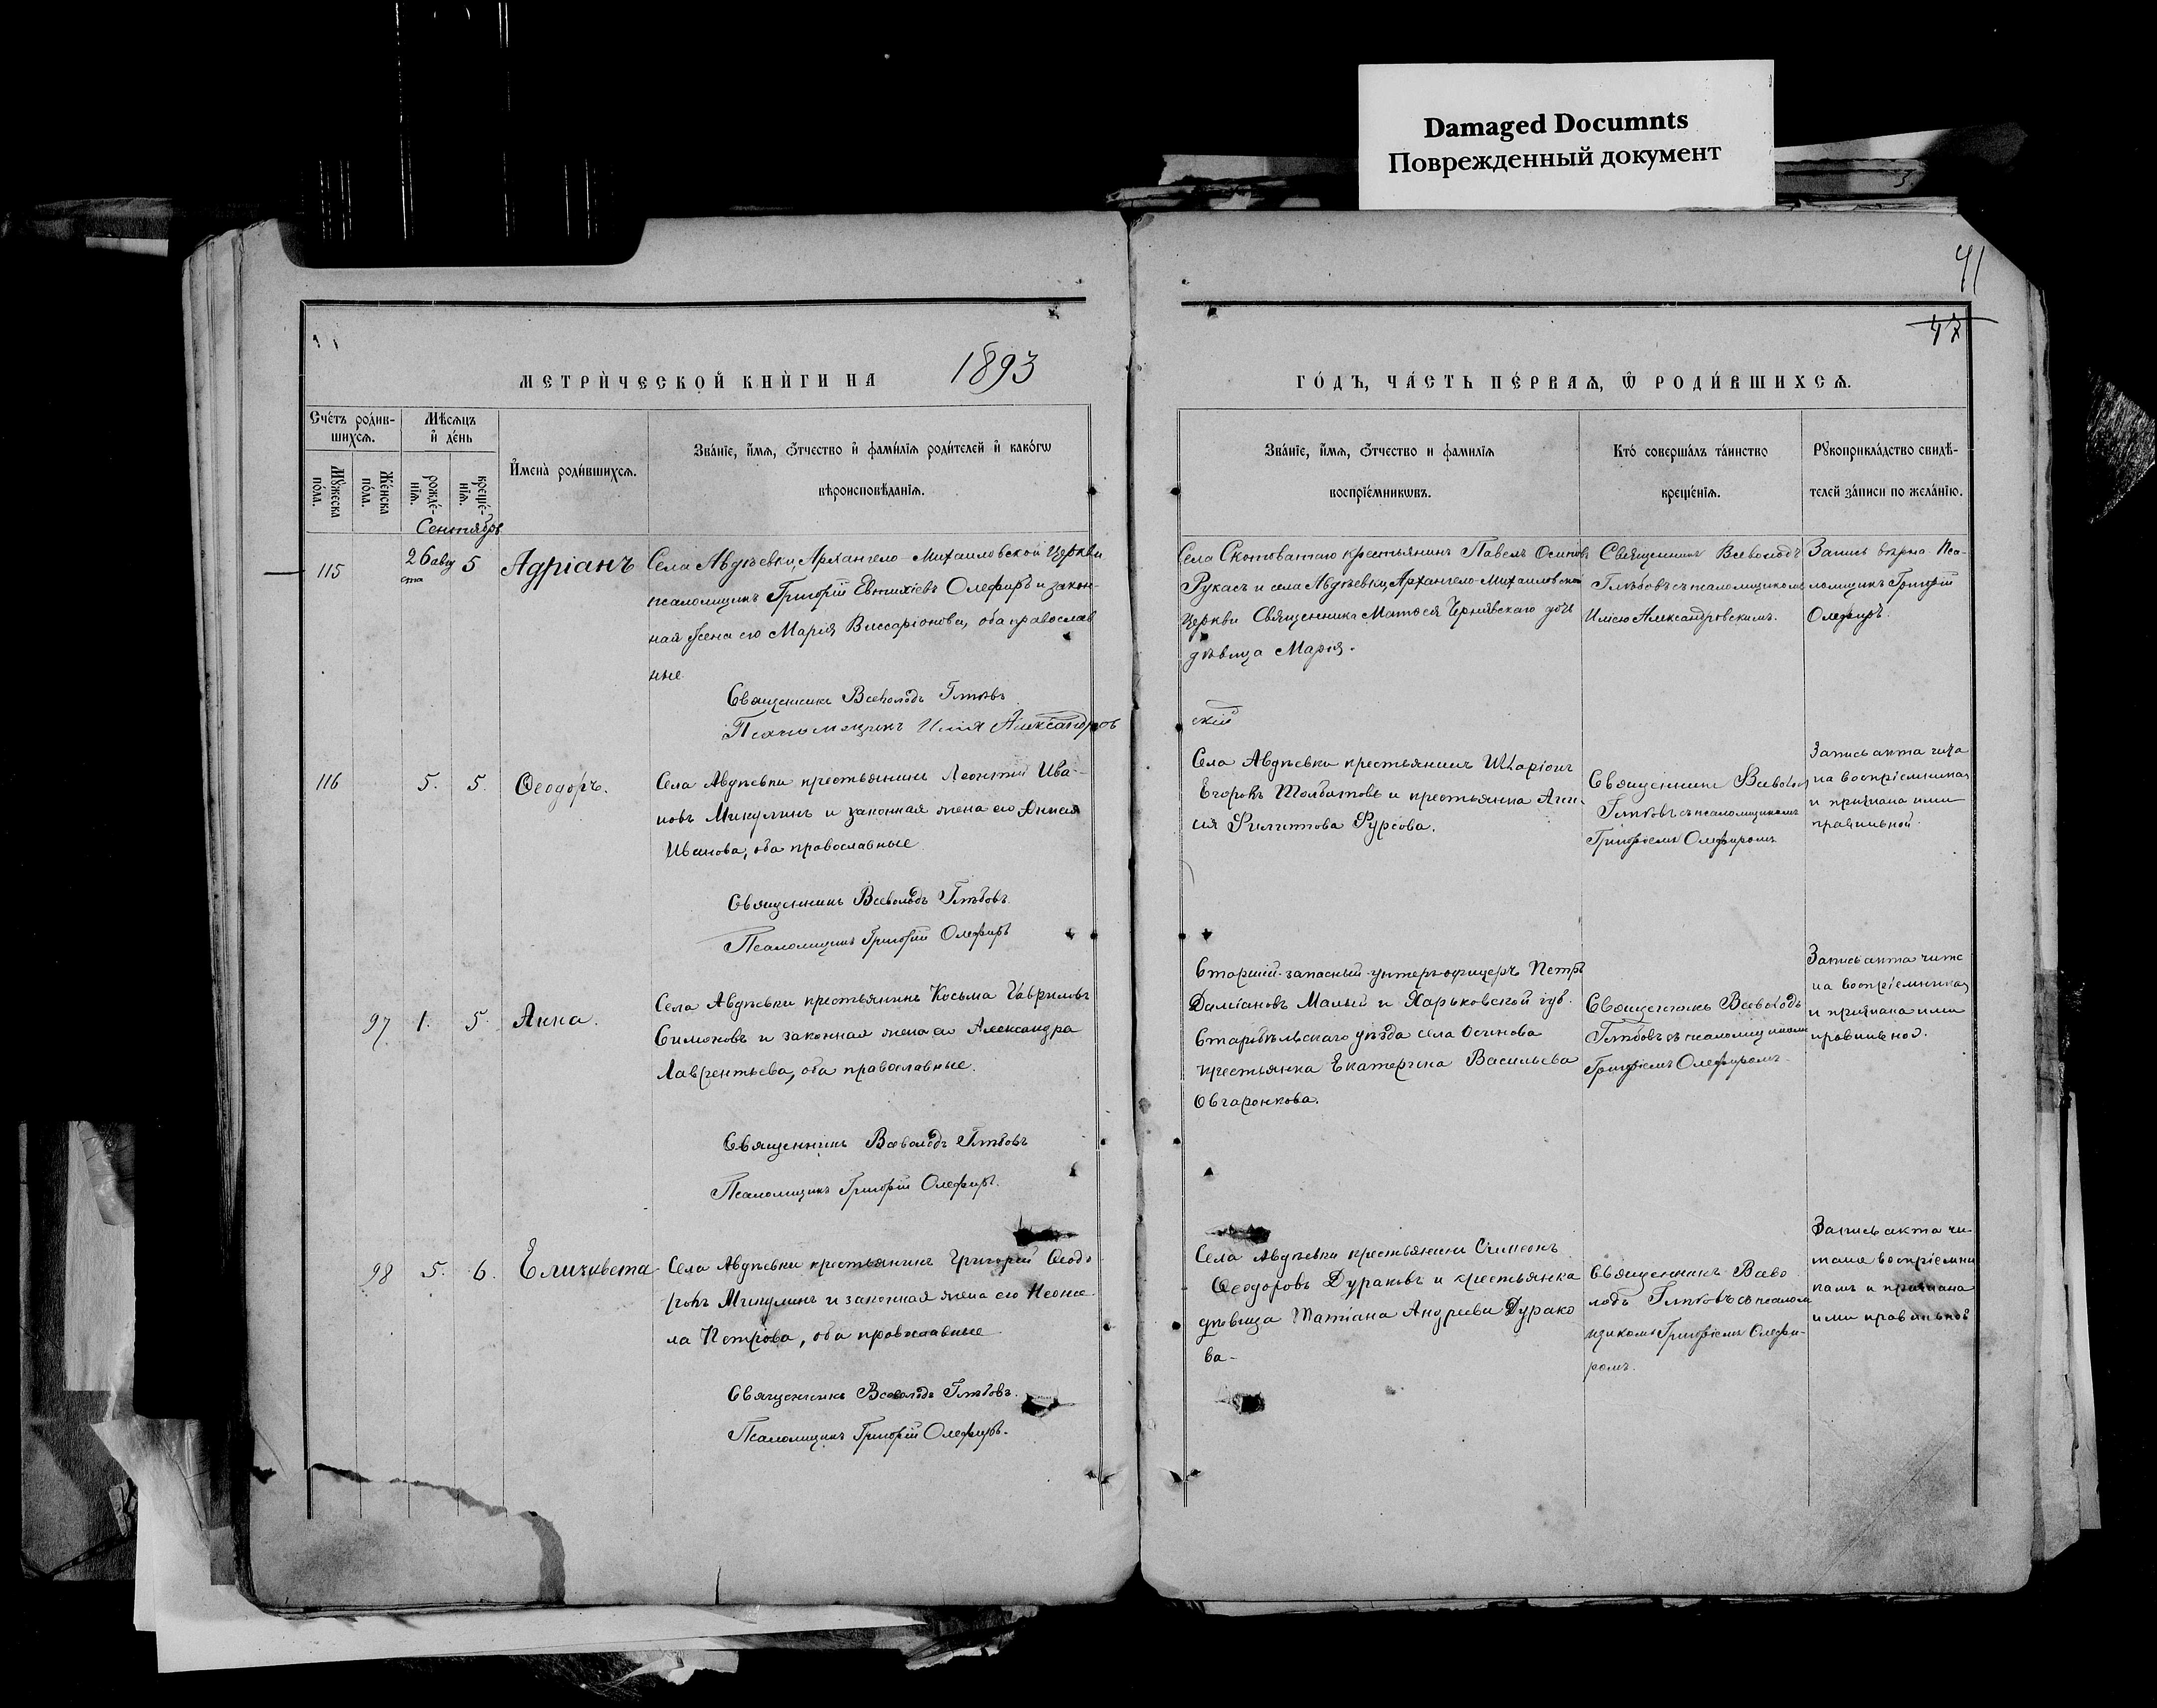 Damaged Documnts
Поврежденный документ
41
47
МЕТРИ́ЧЕСКОЙ КНИ́ГИ НА 1893
ГО́ДЪ, ЧА́СТЬ ПЕ́РВАѦ, Ѿ РОДИ́ВШИХСѦ.
Сче́тъ роди́в-
шихсѧ.
Мѣ́сѧцъ
и҆ де́нь
Мꙋ́жеска
по́ла.
Же́нска
по́ла.
рожде́-
нїѧ.
креще́-
нїѧ.
И҆мена̀ роди́вшихсѧ.
Зва́нїе, и҆́мѧ, ѻ҆́тчество и҆ фами́лїѧ роди́телей и҆ како́гѡ
вѣроисповѣ́данїѧ.
Зва́нїе, и҆́мѧ, ѻ҆́тчество и фами́лїѧ
воспрїе́мникѡвъ.
Кто̀ соверша́лъ та́инство
креще́нїѧ.
Рꙋкоприкла́дство свидѣ́-
телей за́писи по жела́нїю.
Сентябрь
115
26 авгу
ста
5
Адріанъ
Села Авдѣевки, Архангело Михаиловской Церкви
псаломщикъ Григорій Евтихіевъ Олефиръ и закон-
ная жена его Марія Виссаріонова, оба православ
ные
Священникъ Всеволодъ Глѣбовъ
Псаломщикъ Илія Александров
скій
Села Скотоватаго крестьянинъ Павелъ Осиповъ
Рукасъ и села Авдѣевки, Архангело-Михаиловской
Церкви Священника Матѳея Чернявскаго дочь
дѣвица Марія.
Священникъ Всеволодъ
Глѣбовъ съ псаломщикомъ
Иліею Александровскимъ.
Запись вѣрна Пса-
ломщикъ Григорій
Олефиръ.
116
5.
5.
Ѳеодоръ.
Села Авдѣевки крестьянинъ Леонтій Ива-
новъ Микулинъ и законная жена его
Иванова, оба православные
Священникъ Всеволодъ Глѣбовъ.
Псаломщикъ Григорій Олефиръ
Села Авдѣевки крестьянинъ Иларіонъ
Егоровъ Толбатовъ и крестьянка Ани-
сія Филиппова Фурсова.
Священникъ Всеволодъ
Глѣбовъ съ псаломщикомъ
Григоріемъ Олефиромъ
Запись акта чита
на воспріемникам
и признана ими
правильной.
97
1.
5.
Анна.
Села Авдѣевки крестьянинъ Косьма Гавриловъ
Симоновъ и законная жена его Александра
Лаврентьева, оба православные.
Священникъ Всеволодъ Глѣбовъ
Псаломщикъ Григорій Олефиръ.
Старшій запасный унтеръ-офицеръ Петръ
Даміановъ Малый и Харьковской губ.
Старобѣльскаго уѣзда села Осинова
крестьянка Екатерина Васильева
Овчаренкова.
Священникъ Всеволодъ
Глѣбовъ съ псаломщикомъ
Григоріемъ Олефиромъ
Запись акта чита
на воспріемникам
и признана ими
правильной.
98
5.
6.
Елизавета
Села Авдѣевки крестьянинъ Григорій Ѳеодо-
ровъ Микулинъ и законная жена его Неони-
ла Петрова, оба православные
Священникъ Всеволодъ Глѣбовъ.
Псаломщикъ Григорій Олефиръ.
Села Авдѣевки крестьянинъ Симеонъ
Ѳеодоровъ Дураковъ и крестьянка
дѣвица Татіана Андреева Дурако
ва-
Священникъ Всево
лодъ Глѣбовъ съ псалом
щикомъ Григоріемъ Олефи-
ромъ.
Запись акта чи
тана воспріемни
камъ и признана
ими правильной